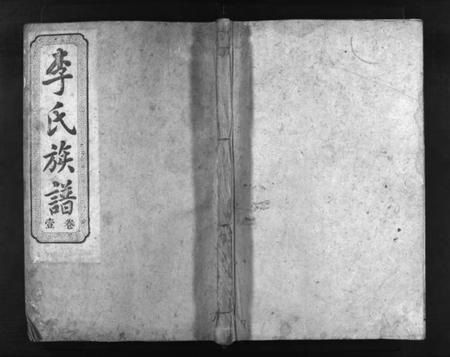 李氏族譜
卷壹